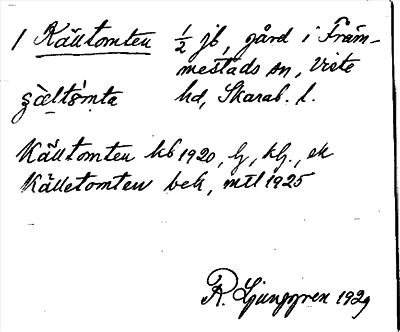 1 Källtomten 1/2 jb, gård i Främ-
mestads sn, Viste
hd, Skarab. l.
Källtomten kb 1920, lj, klj., ek
Källetomten bek, mtl 1925
R. Ljunggren 1929